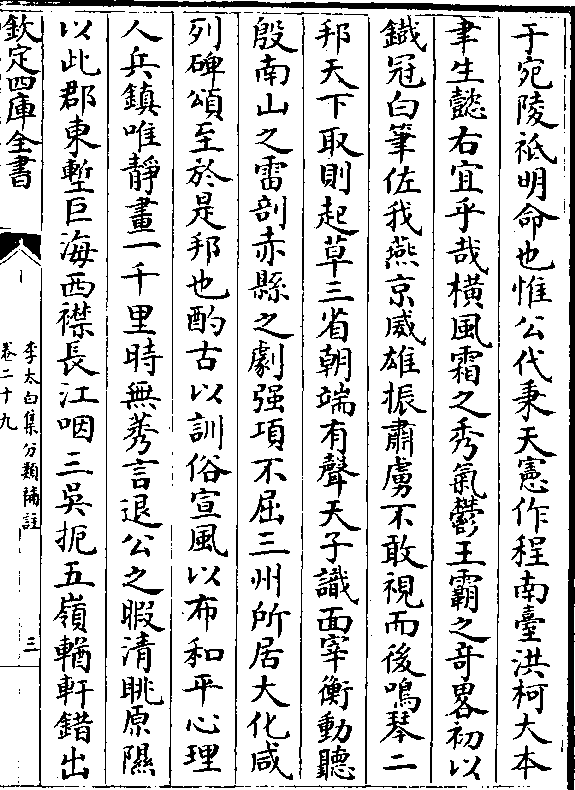 于宛陵祗明命也惟公代秉天憲作程南臺洪柯大本
聿生懿右宜乎哉橫風霜之秀氣鬱王霸之奇畧初以
鐵冠白筆佐我燕京威雄振肅虜不敢視而後鳴琴二
邦天下取則起草三省朝端有聲天子識面宰衡動聽
殷南山之雷剖赤縣之劇强項不屈三州所居大化咸
列碑頌至於是邦也酌古以訓俗宣風以布和平心理
人兵鎮唯靜畫一千里時無莠言退公之暇清眺原隰
以此郡東塹巨海西襟長江咽三吳扼五嶺輶軒錯出
欽定四庫全書
李太白集分類補註
卷二十九
三